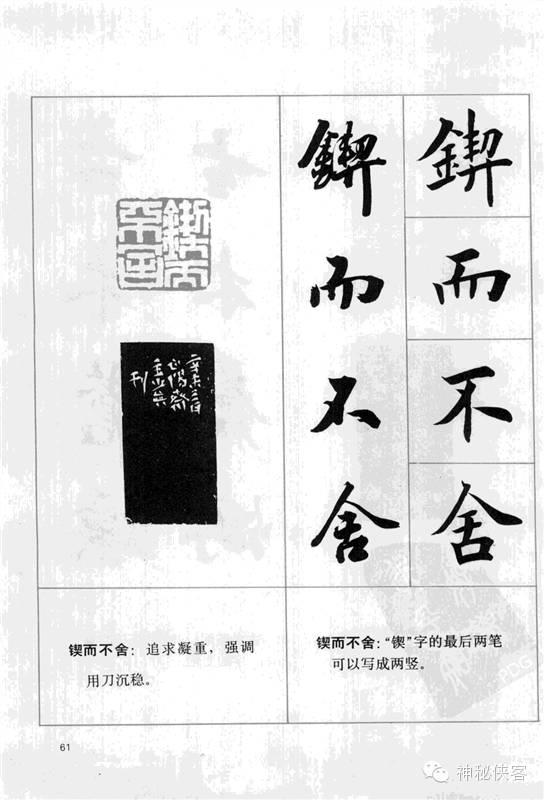 鍥而不舍
鍥而不舍
锲而不舍：追求凝重，强调
用刀沉稳。
锲而不舍：“锲”字的最后两笔
可以写成两竖。
61
神秘侠客